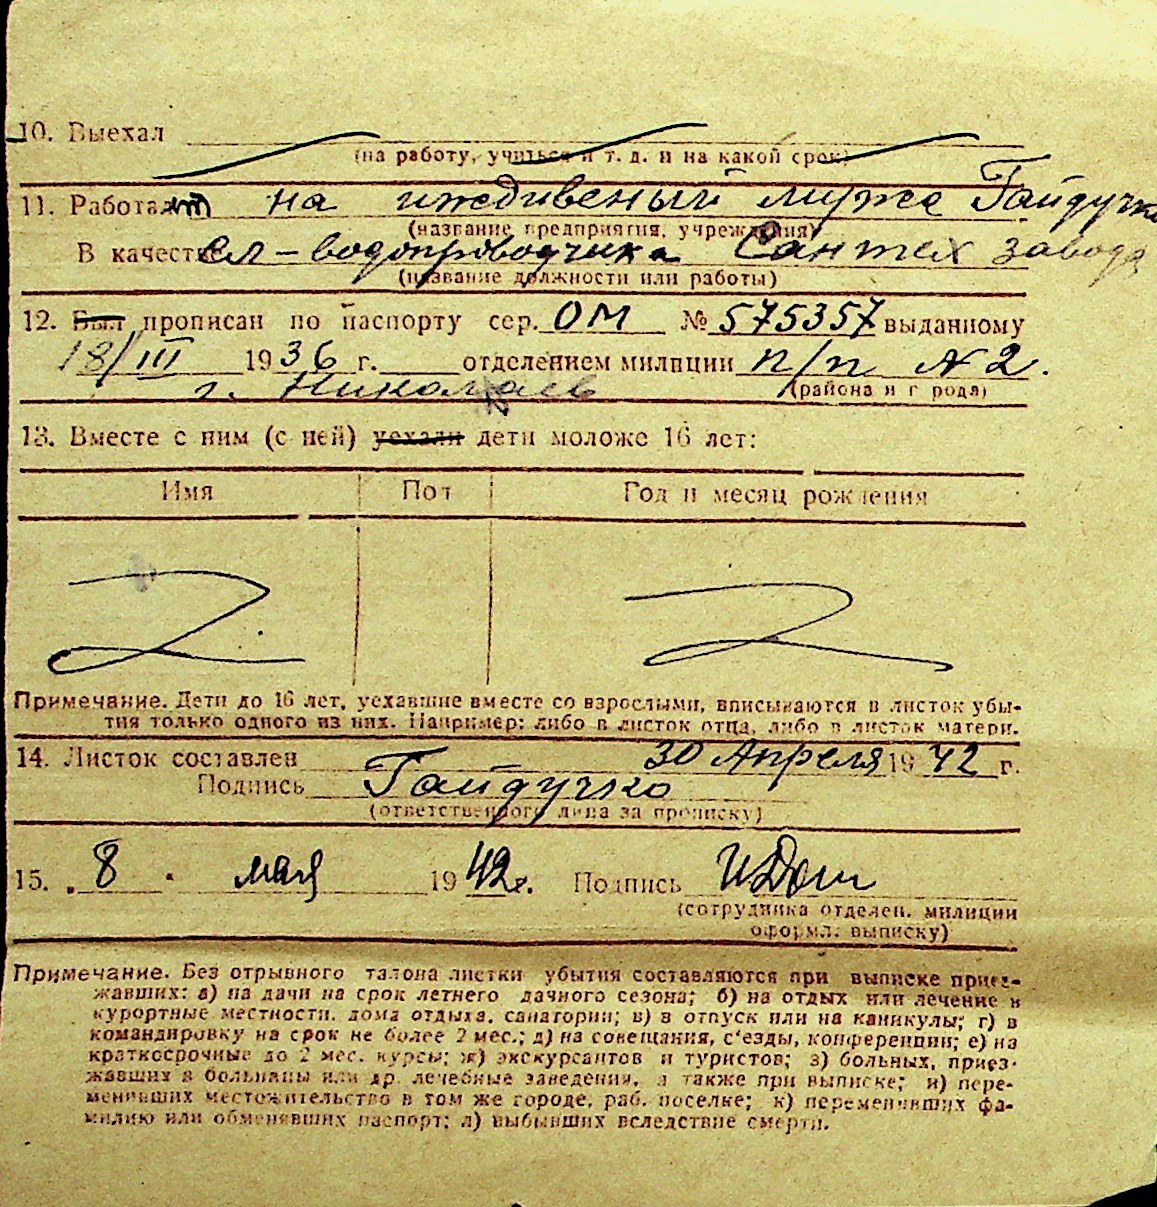 10. Выехал
(на работу, учиться и т. д. и на какой срок)
11. Работает на иждивеный мужа Гайдучко
(название предприятия, учреждения)
В качестве сл-водопроводчика Сантех завода
(название должности или работы)
12. Был прописан по паспорту сер. ОМ № 575357 выданному
18/III 1936 г. отделением милиции п/п № 2.
г. Николаев (района и г рода)
13. Вместе с ним (с ней) уехали дети моложе 16 лет:
Имя Пол Год и месяц рождения
Примечание. Дети до 16 лет, уехавшие вместе со взрослыми, вписываются в листок убы-
тия только одного из них. Например: либо в листок отца, либо в листок матери.
14. Листок составлен 30 Апреля 1942 г.
Подпись Гайдучко
(ответственного лица за прописку)
15. 8 мая 1942 г. Подпись
(сотрудника отделен. милиции
оформл. выписку)
Примечание. Без отрывного талона листки убытия составляются при выписке приез-
жавших: а) на дачи на срок летнего дачного сезона; б) на отдых или лечение в
курортные местности, дома отдыха, санатории; в) в отпуск или на каникулы; г) в
командировку на срок не более 2 мес.; д) на совещания, с'езды, конференции; е) на
краткосрочные до 2 мес. курсы; ж) экскурсантов и туристов; з) больных, приез-
жавших в больницы или др. лечебные заведения, а также при выписке; и) пере-
менивших местожительство в том же городе, раб. поселке; к) переменивших фа-
милию или обменявших паспорт; л) выбывших вследствие смерти.